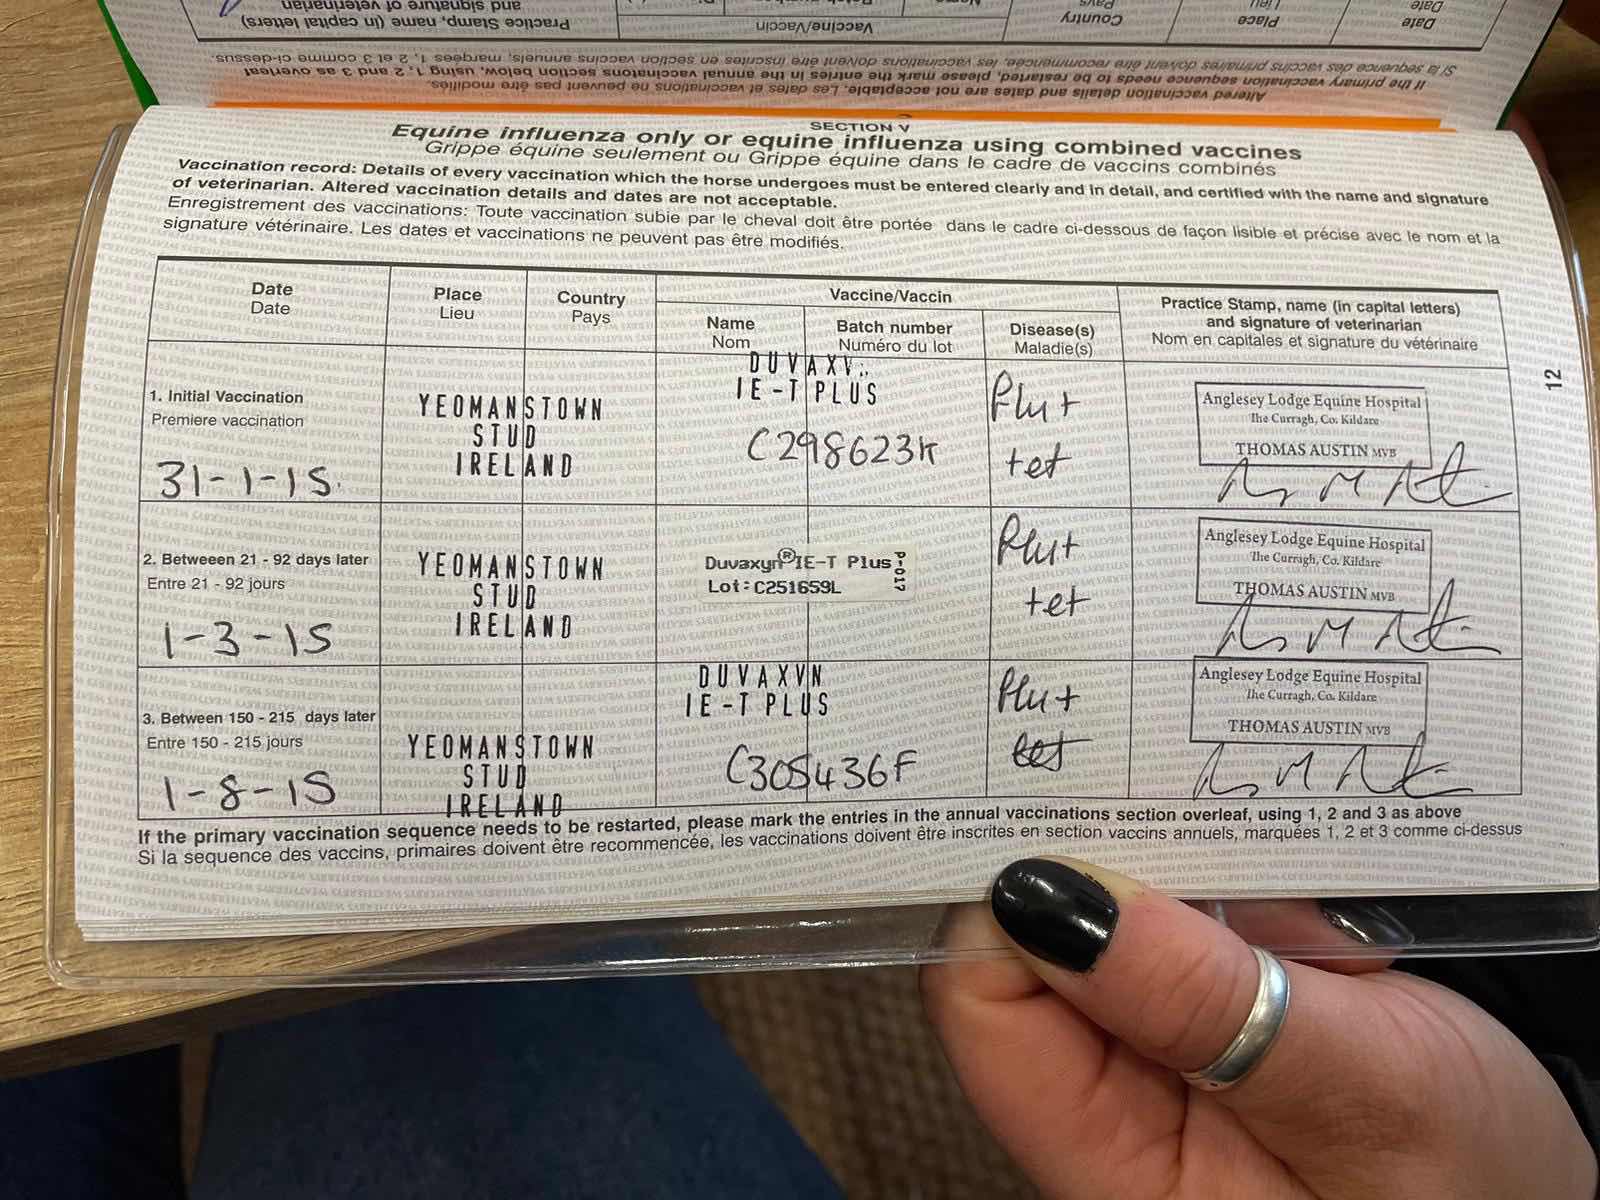 Practice Stamp, name (in capital letters)
and signature of veterinarian
Vaccine/Vaccin
Country
Pays
Place
Lieu
Date
Date
Altered vaccination details and dates are not acceptable. Les dates et vaccinations ne peuvent pas être modifiés.
If the primary vaccination sequence needs to be restarted, please mark the entries in the annual vaccinations section below, using 1, 2 and 3 as overleaf
Si la séquence des vaccins primaires doivent être recommencée, les vaccinations doivent être inscrites en section vaccins annuels, marquées 1, 2 et 3 comme ci-dessus.
SECTION V
Equine influenza only or equine influenza using combined vaccines
Grippe équine seulement ou Grippe équine dans le cadre de vaccins combinés
Vaccination record: Details of every vaccination which the horse undergoes must be entered clearly and in detail, and certified with the name and signature
of veterinarian. Altered vaccination details and dates are not acceptable.
Enregistrement des vaccinations: Toute vaccination subie par le cheval doit être portée dans le cadre ci-dessous de façon lisible et précise avec le nom et la
signature vétérinaire. Les dates et vaccinations ne peuvent pas être modifiés.
Date
Date
Place
Lieu
Country
Pays
Vaccine/Vaccin
Name
Nom
Batch number
Numéro du lot
Disease(s)
Maladie(s)
Practice Stamp, name (in capital letters)
and signature of veterinarian
Nom en capitales et signature du vétérinaire
12
1. Initial Vaccination
Premiere vaccination
31-1-15.
YEOMANSTOWN
STUD
IRELAND
IE-T PLUS
C298623K
Flu+
tet
Anglesey Lodge Equine Hospital
The Curragh, Co. Kildare
THOMAS AUSTIN MVB
2. Betweeen 21 - 92 days later
Entre 21 - 92 jours
1-3-15
YEOMANSTOWN
STUD
IRELAND
Duvaxyn® IE-T Plus
Lot: C251659L
P-017
Flu+
tet
Anglesey Lodge Equine Hospital
The Curragh, Co. Kildare
THOMAS AUSTIN MVB
3. Between 150 - 215 days later
Entre 150 - 215 jours
1-8-15
YEOMANSTOWN
STUD
IRELAND
DUVAXVN
IE-T PLUS
C305436F
Flu+
tet
Anglesey Lodge Equine Hospital
The Curragh, Co. Kildare
THOMAS AUSTIN MVB
If the primary vaccination sequence needs to be restarted, please mark the entries in the annual vaccinations section overleaf, using 1, 2 and 3 as above
Si la sequence des vaccins, primaires doivent être recommencée, les vaccinations doivent être inscrites en section vaccins annuels, marquées 1, 2 et 3 comme ci-dessus